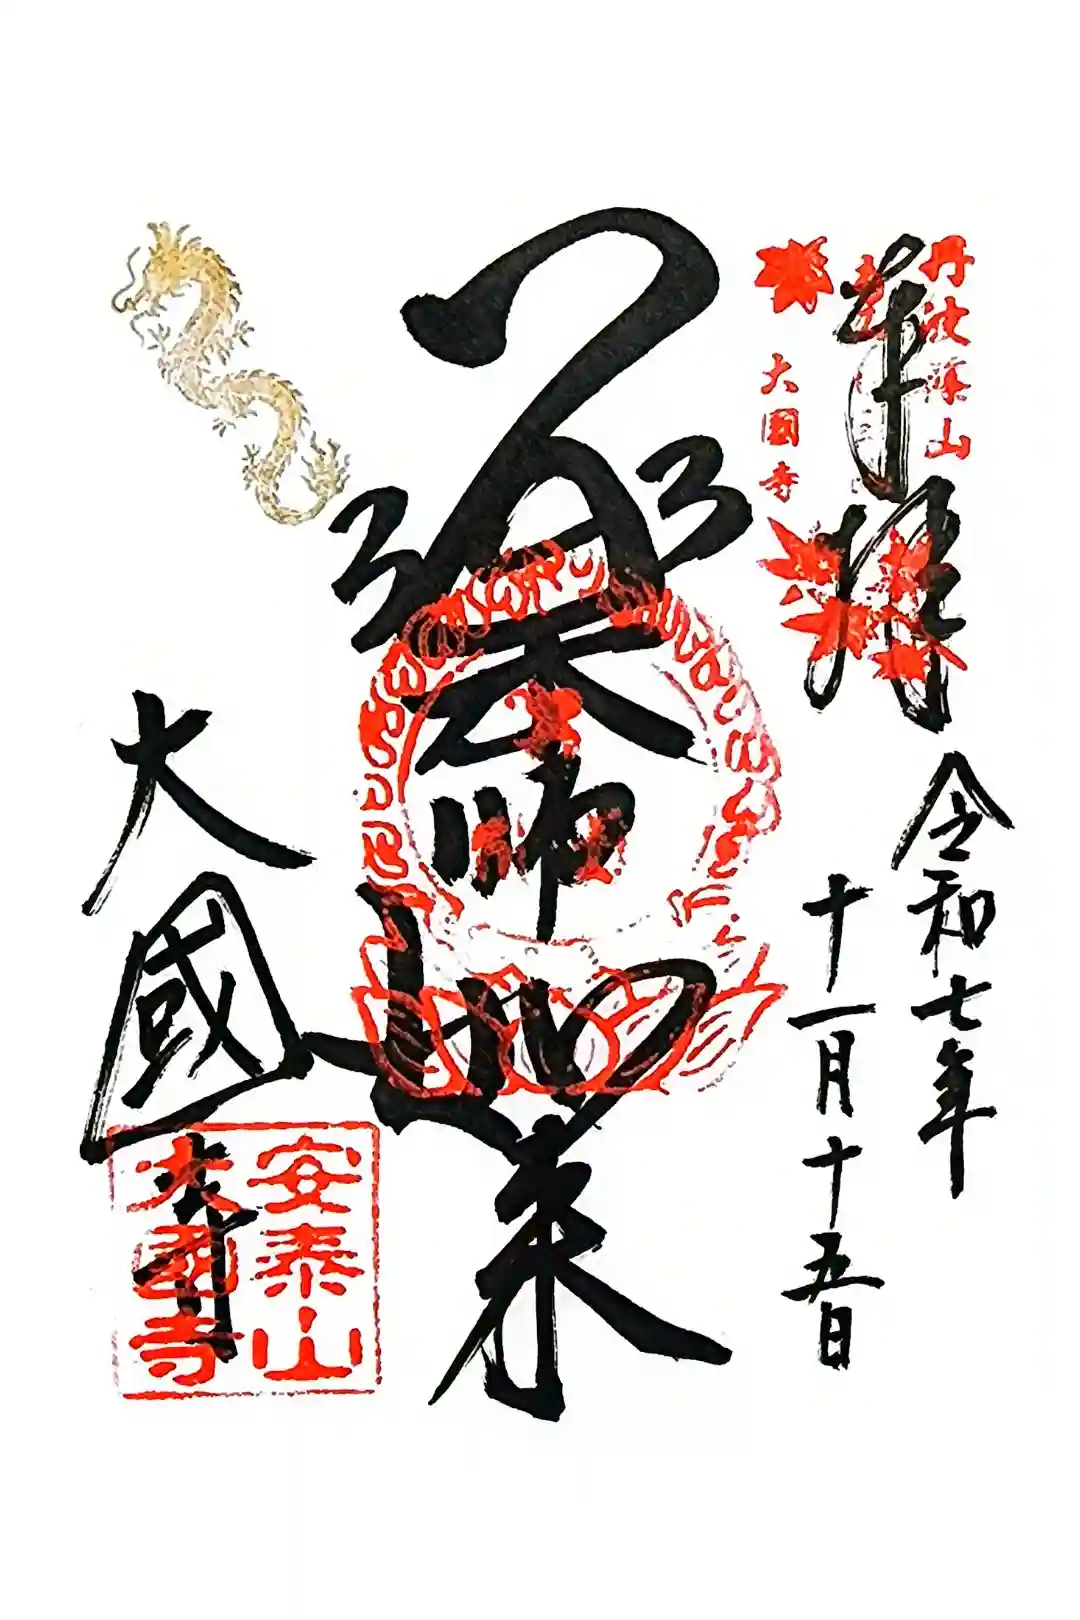 丹波篠山
奉拝
大國寺
令和七年
十一月十五日
薬師如来
大國寺
安泰山
大國寺